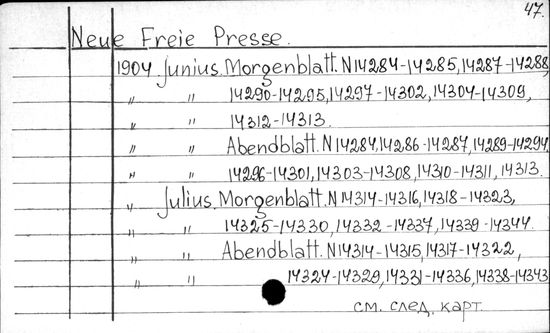 47.
Neue Freie Presse.
1904 Junius. Morgenblatt. N14284-14285,14287-14288,
" " 14290-14295,14297-14302,14304-14309,
" " 14312-14313.
" " Abendblatt. N14284,14286-14287,14289-14294,
" " 14296-14301,14303-14308,14310-14311,14313.
" Julius. Morgenblatt. N14314-14316,14318-14323,
" " 14325-14330,14332-14337,14339-14344.
" " Abendblatt. N14314-14315,14317-14322,
" " 14324-14329,14331-14336,14338-14343
см. след. карт.